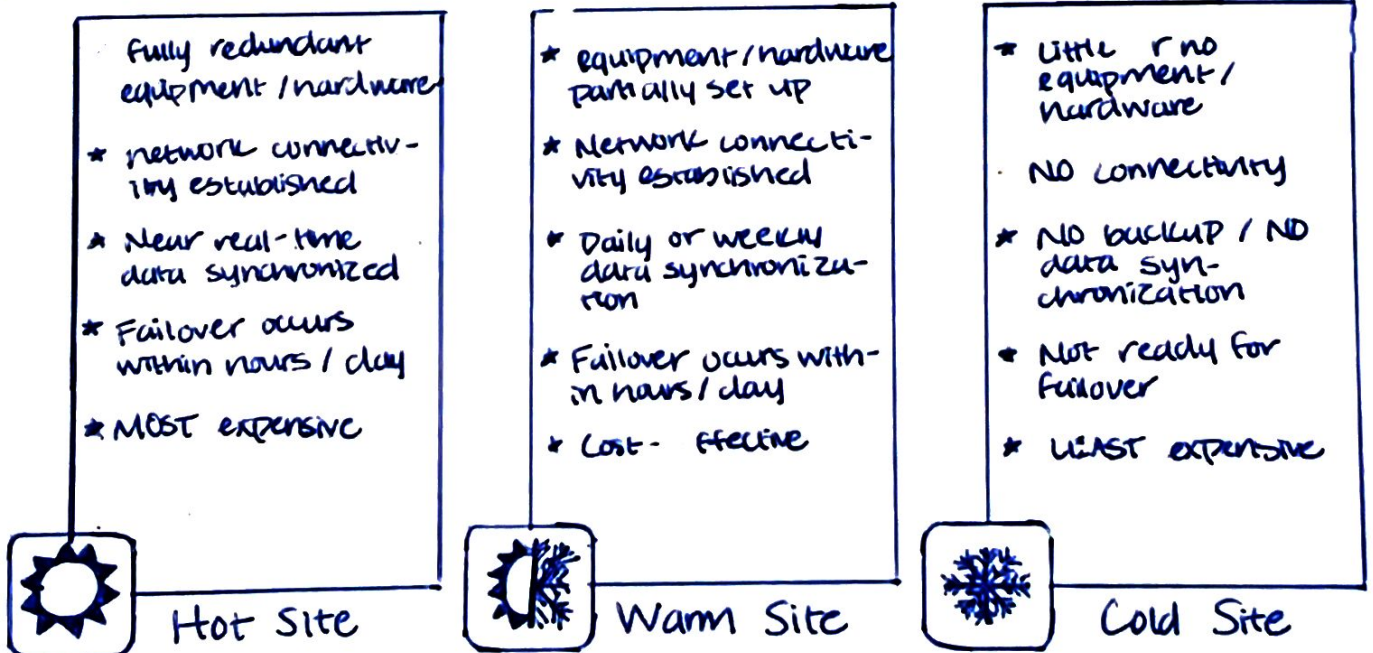 Fully redundant
equipment / hardware
* network connectiv-
ity established
* Near real-time
data synchronized
* Failover occurs
within hours / day
* MOST expensive
Hot Site
* equipment / hardware
partially set up
* Network connecti-
vity established
* Daily or weekly
data synchroniza-
tion
* Failover occurs with-
in hours / day
* Cost- Effective
Warm Site
* Little r no
equipment /
hardware
NO connectivity
* NO backup / NO
data syn-
chronization
* Not ready for
failover
* LEAST expensive
Cold Site